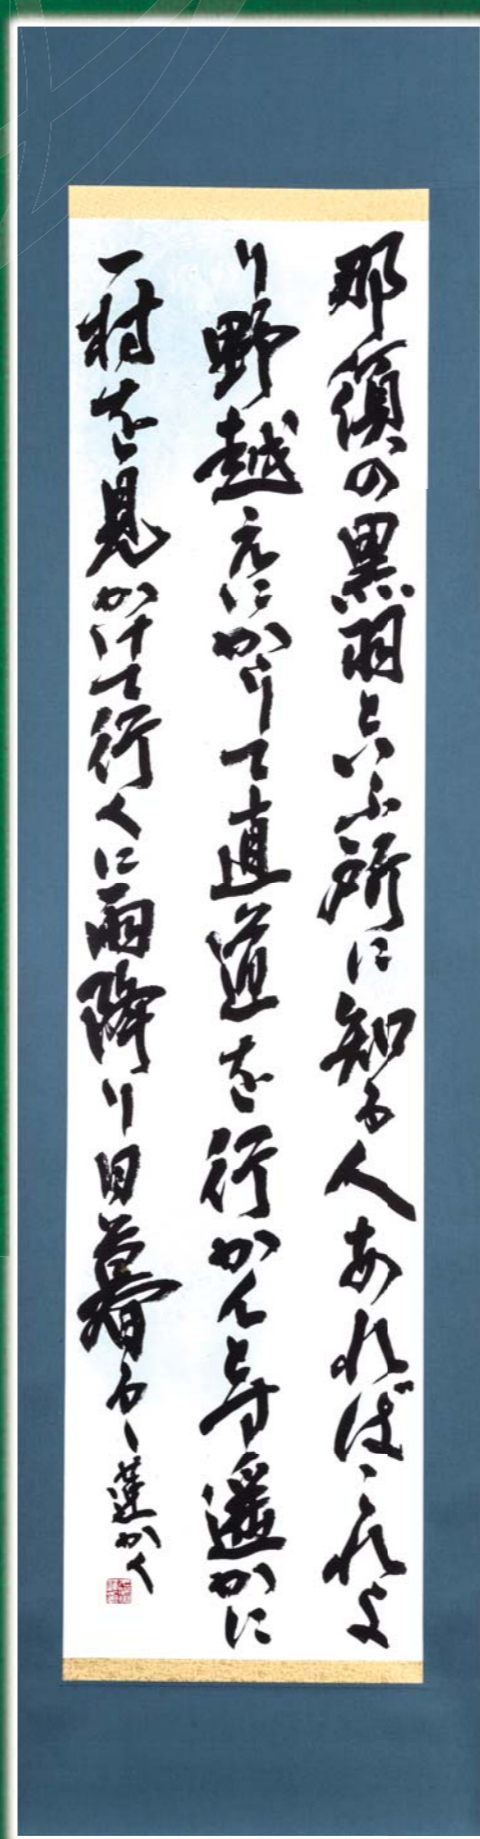 那須の黒羽といふ所に知る人あればこれよ
り野越えにかゝりて直道を行かんとす遥かに
一村を見かけて行くに雨降り日暮るゝ蓮かく